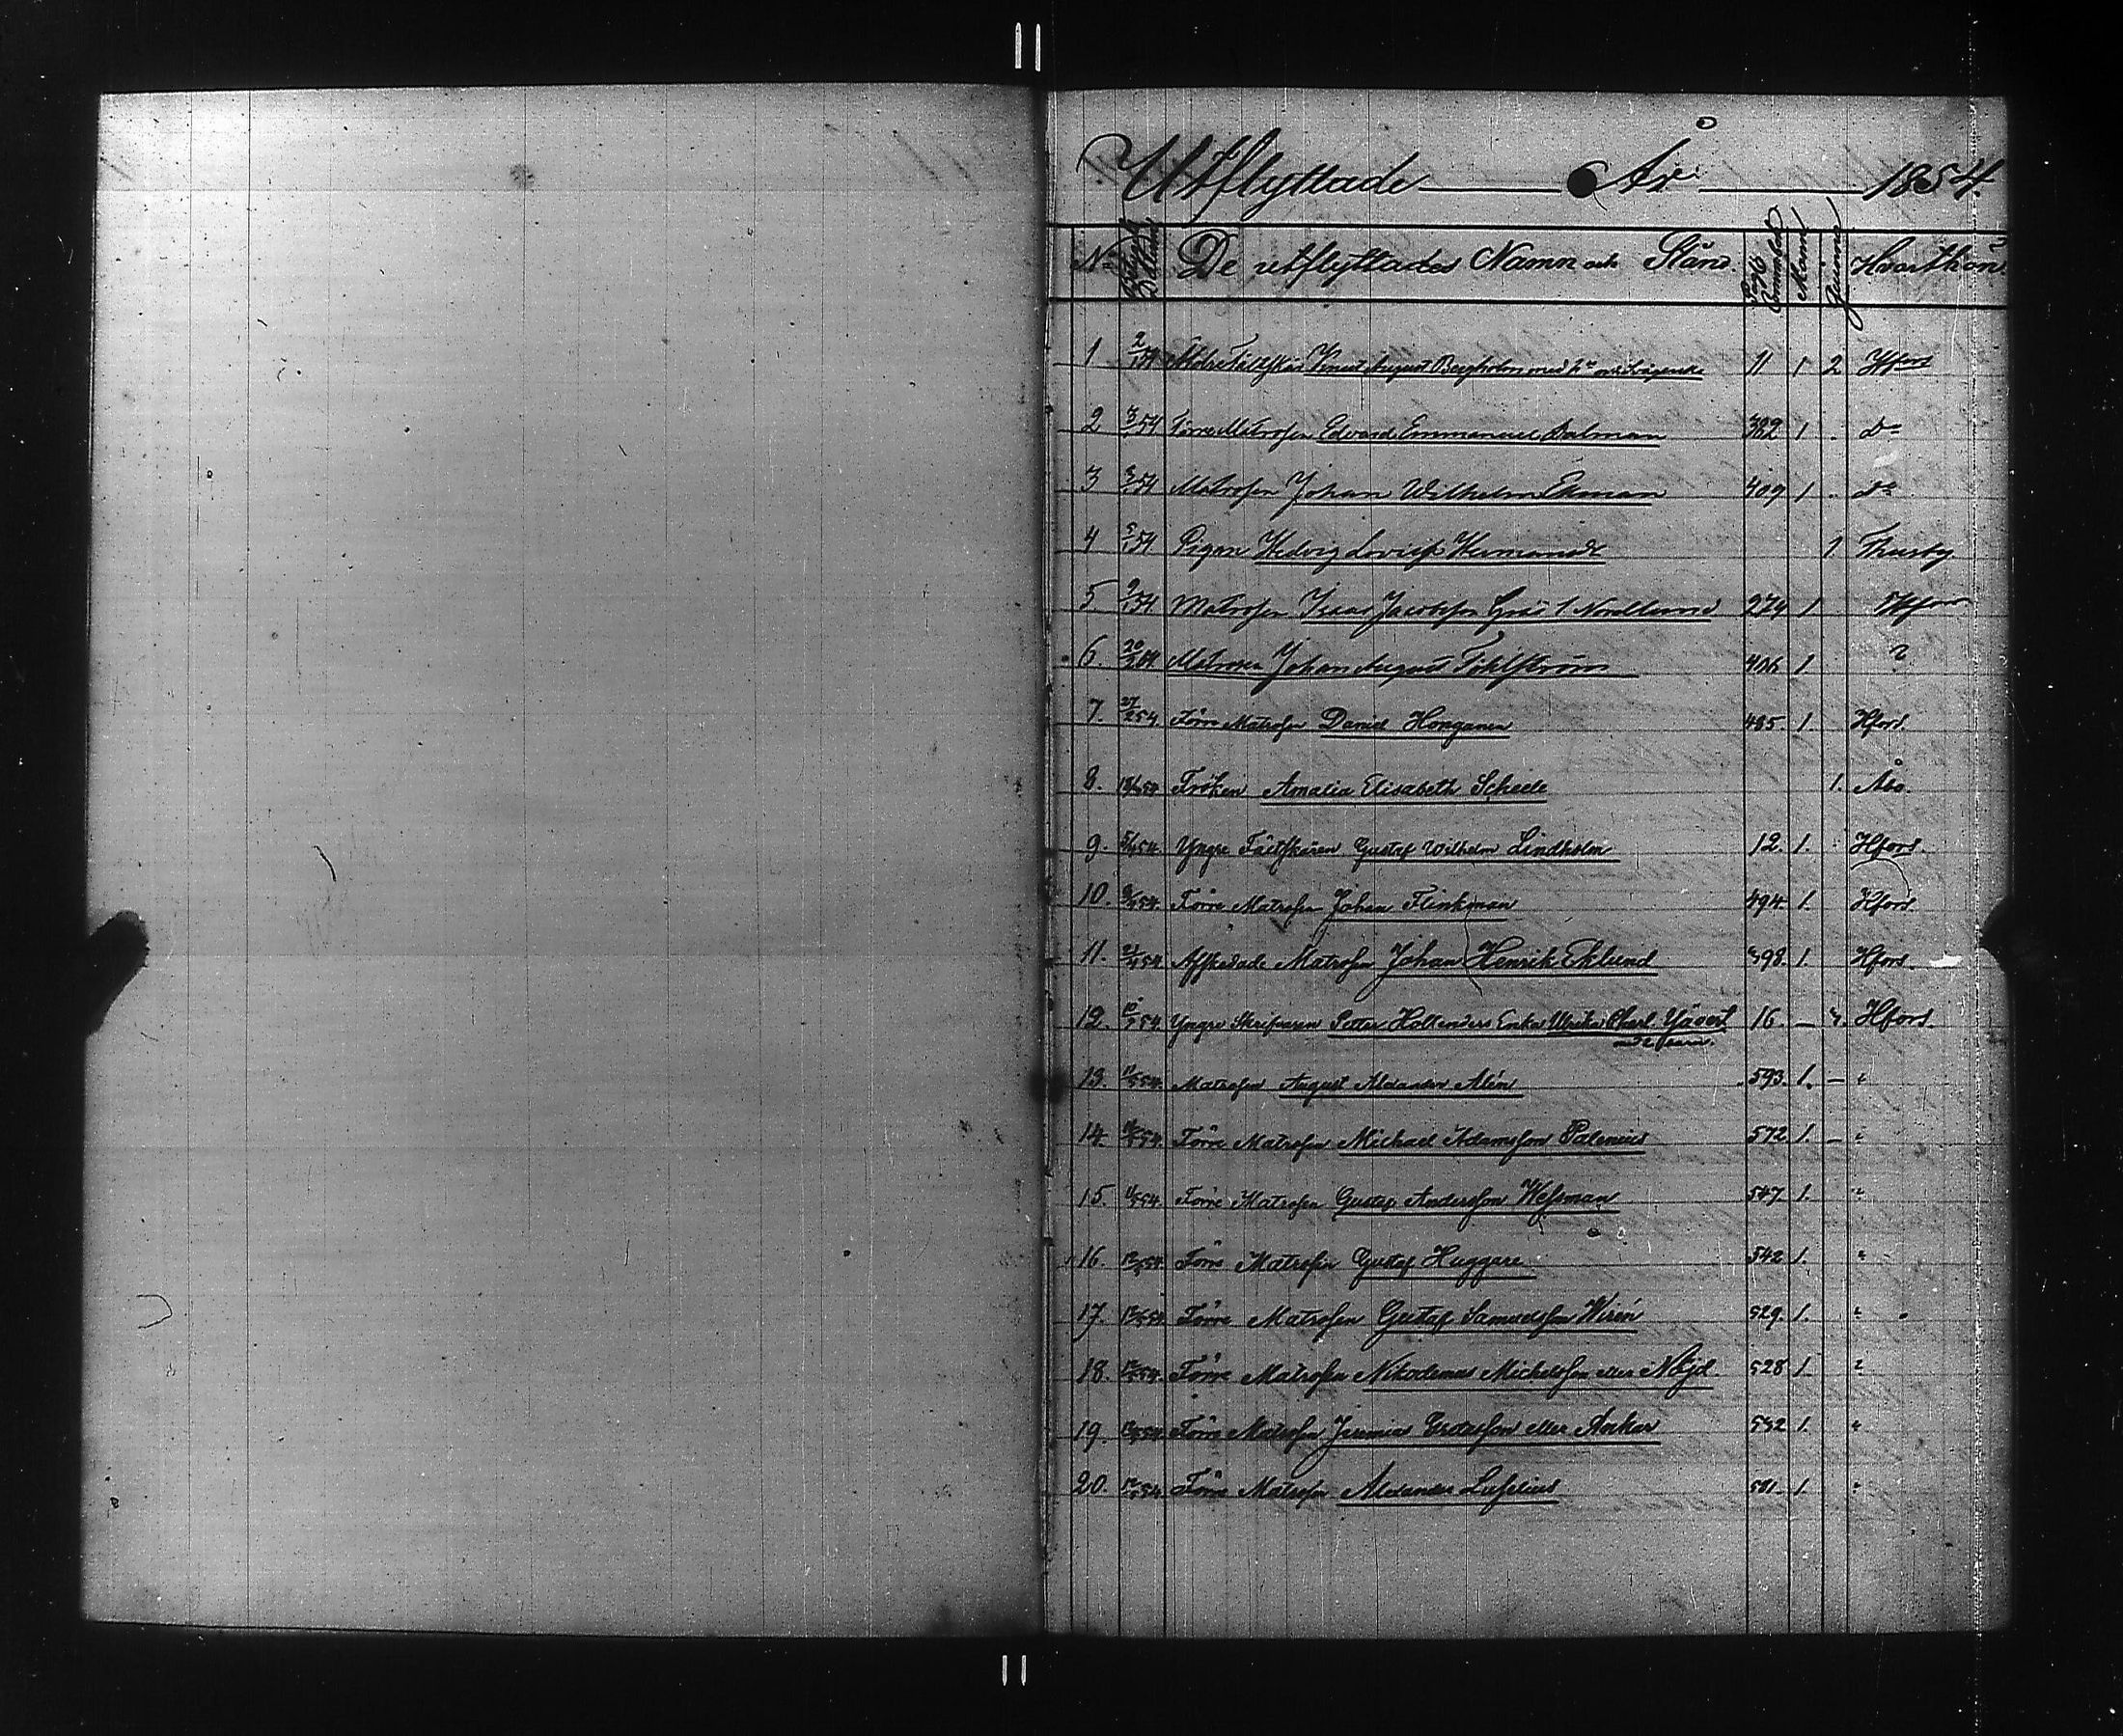 Utflyttade År 1854
No De utflyttades Namn och Stånd. Mann Qvinna Hvarthän
1 2/1 54 Äldre Fältskär Knut August Bergholm med 11 1 2 Hfors
2 3/1 54 Förre Matrosen Edvard Emmanuel Dalman 382 1 . Do
3 3/1 54 Matrosen Johan Wilhelm Ekman 409 1 . Do
4 5/1 54 Pigan Hedvig Lovisa 1 Thusby
5 9/1 54 Matrosen Isaac Jacobsson Nordlund 274 1 Hfors
6. 20/2 54 Matrosen Johan August 406 1 ?
7. 27/2 54 Förre Matrosen Daniel Honganen 485. 1. Hfors.
8. Fröken Amalia Elisabeth Scheele 1. Åbo.
9. 5/4 54. Yngre Fältskären Gustaf Wilhelm Lindholm 12. 1. Hfors
10. Förre Matrosen Johan Flinkman 494. 1. Hfors.
11. 21/4 54 Afskedade Matrosen Johan Henrik Eklund 398. 1. Hfors.
12. Yngre Skrifvaren Petter Hollenders Enka Ulrika Charl. 16. — 3. Hfors.
13. 11/5 54. Matrosen August Alexander Alén 593. 1. — "
14. Förre Matrosen Michael Adamsson Palenius 572 1. — "
15. 11/5 54. Förre Matrosen Gustaf Andersson Wessman 547. 1. "
16. 12/5 54. Förre Matrosen Gustaf Huggare 542. 1. "
17. 12/5 54. Förre Matrosen Gustaf Samuelsson Wirén 529. 1. "
18. 12/5 54. Förre Matrosen Nikodemus Michelsson eller Nöjd. 528 1. "
19. 12/5 54. Förre Matrosen Jeremias Gustafsson eller Ankar 532 1. "
20. 12/5 54. Förre Matrosen Alexander Lufelius 581. 1. "